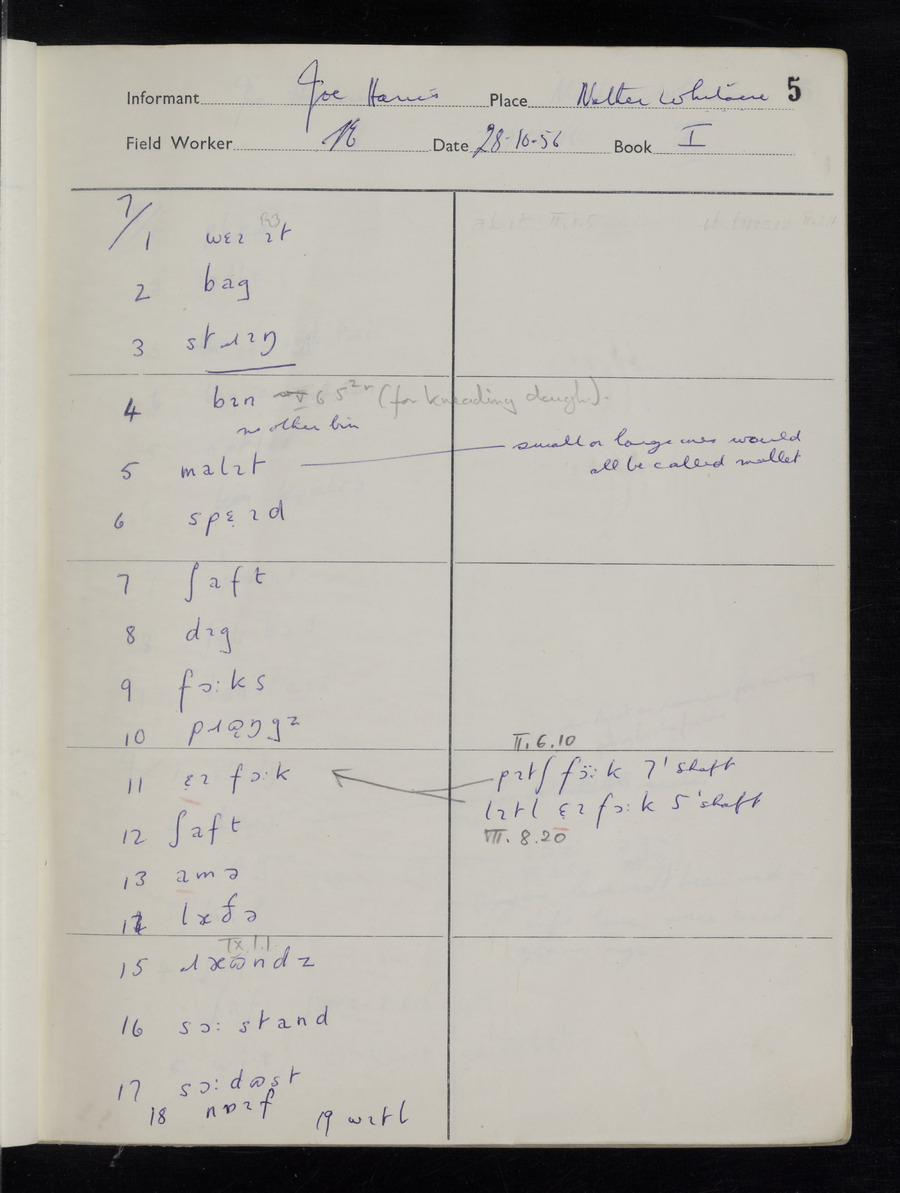 Informant Joe Harris Place Nether Whitacre 5
Field Worker Date 28-10-56 Book I
7/1 wɛɪ ɪt
2 bag
3 stɹɪŋ
4 bɪn V 6 5 (for kneading dough).
no other bin
5 malɪt small or large ones would
all be called mallet
6 spɛɪd
7 ʃaft
8 dɪg
9 fɔ:ks
10
II.6.10
11 ɛɪ fɔ:k pɪtʃ fɔ̈:k 7' shaft
lɪtl ɛɪ fɔ:k 5' shaft
12 ʃaft VII.8.20
13 amə
14
IX.1.1
15
16 sɔ: stand
17 sɔ:dɷst
18 19 wɪtl